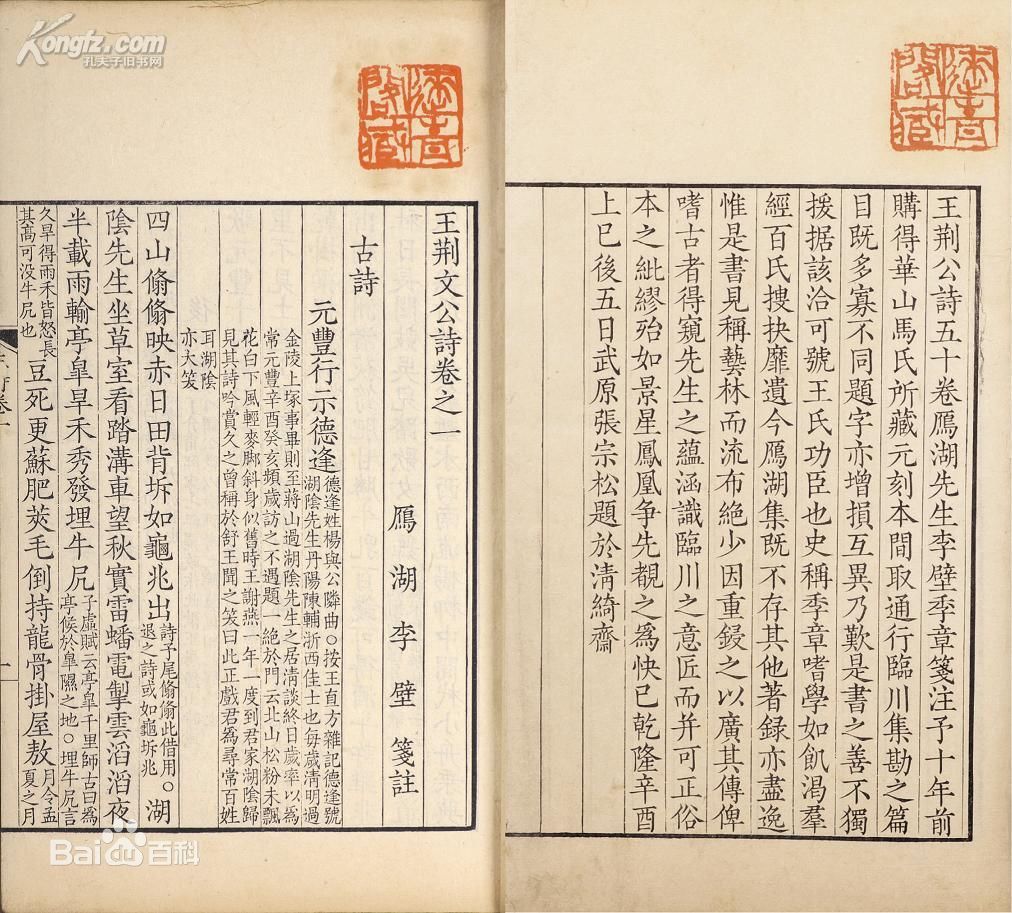 王荊公詩五十卷鴈湖先生李壁季章箋注予十年前
購得華山馬氏所藏元刻本間取通行臨川集勘之篇
目既多寡不同題字亦增損互異乃歎是書之善不獨
援据該洽可號王氏功臣也史稱季章嗜學如飢渴羣
經百氏搜抉靡遺今鴈湖集既不存其他著録亦盡逸
惟是書見稱藝林而流布絶少因重鋟之以廣其傳俾
嗜古者得窺先生之蘊涵識臨川之意匠而并可正俗
本之紕繆殆如景星鳳凰争先覩之爲快已乾隆辛酉
上巳後五日武原張宗松題於清綺齋
王荊文公詩卷之一
鴈湖李壁箋註
古詩
元豐行示德逢
德逢姓楊與公隣曲○按王直方雜記德逢號
湖陰先生丹陽陳輔浙西佳士也每歲清明過
金陵上塚事畢則至蔣山過湖陰先生之居清談終日歲率以爲
常元豐辛酉癸亥頻歲訪之不遇題一絶於門云北山松粉未飄
花白下風輕麥脚斜身似舊時王謝燕一年一度到君家湖陰歸
見其詩吟賞久之曾稱於舒王聞之笑曰此正戲君爲尋常百姓
耳湖陰
亦大笑
四山翛翛映赤日田背坼如龜兆出
詩予尾翛翛此借用○
退之詩或如龜坼兆
湖
陰先生坐草室看踏溝車望秋實雷蟠電掣雲滔滔夜
半載雨輸亭皐旱禾秀發埋牛尻
子虛賦云亭皐千里師古曰爲
亭候於皐隰之地○埋牛尻言
久旱得雨禾皆怒長
其高可没牛尻也
豆死更蘇肥莢毛倒持龍骨掛屋敖
月令孟
夏之月
Kongfz.com
孔夫子旧书网
Bai百科